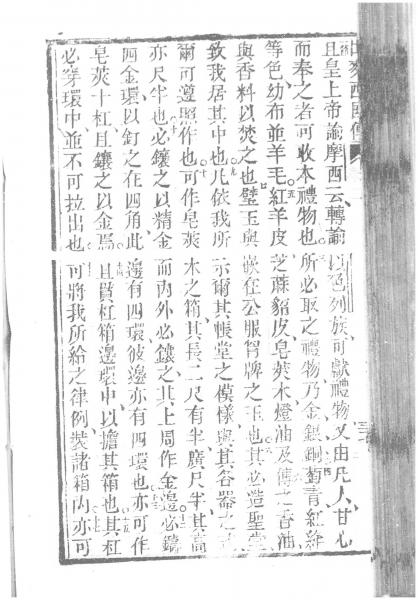 麥西國傳
且皇上帝諭摩西云轉諭以色列族可獻禮物又由民人甘心
而奉之者可收木禮物也所必取之禮物乃金銀銅葡青紅絳
等色幼布並羊毛紅羊皮芝蔴貂皮皂莢木燈油及傅之香油
與香料以焚之也璧玉與嵌在公服胷牌之玉也其必造聖堂
致我居其中也凡依我所示爾其帳堂之模樣與其各器之式
爾可遵照作也可作皂莢木之箱其長二尺有半廣尺半其高
亦尺半也必鑲之以精金而內外必鑲之其上周作金邊必鑄
四金環以釘之在四角此邊有四環彼邊亦有四環也亦可作
皂莢十杠且鑲之以金焉且貫杠箱邊環中以擔其箱也其杠
必穿環中並不可拉出也可將我所給之律例裝諸箱內亦可